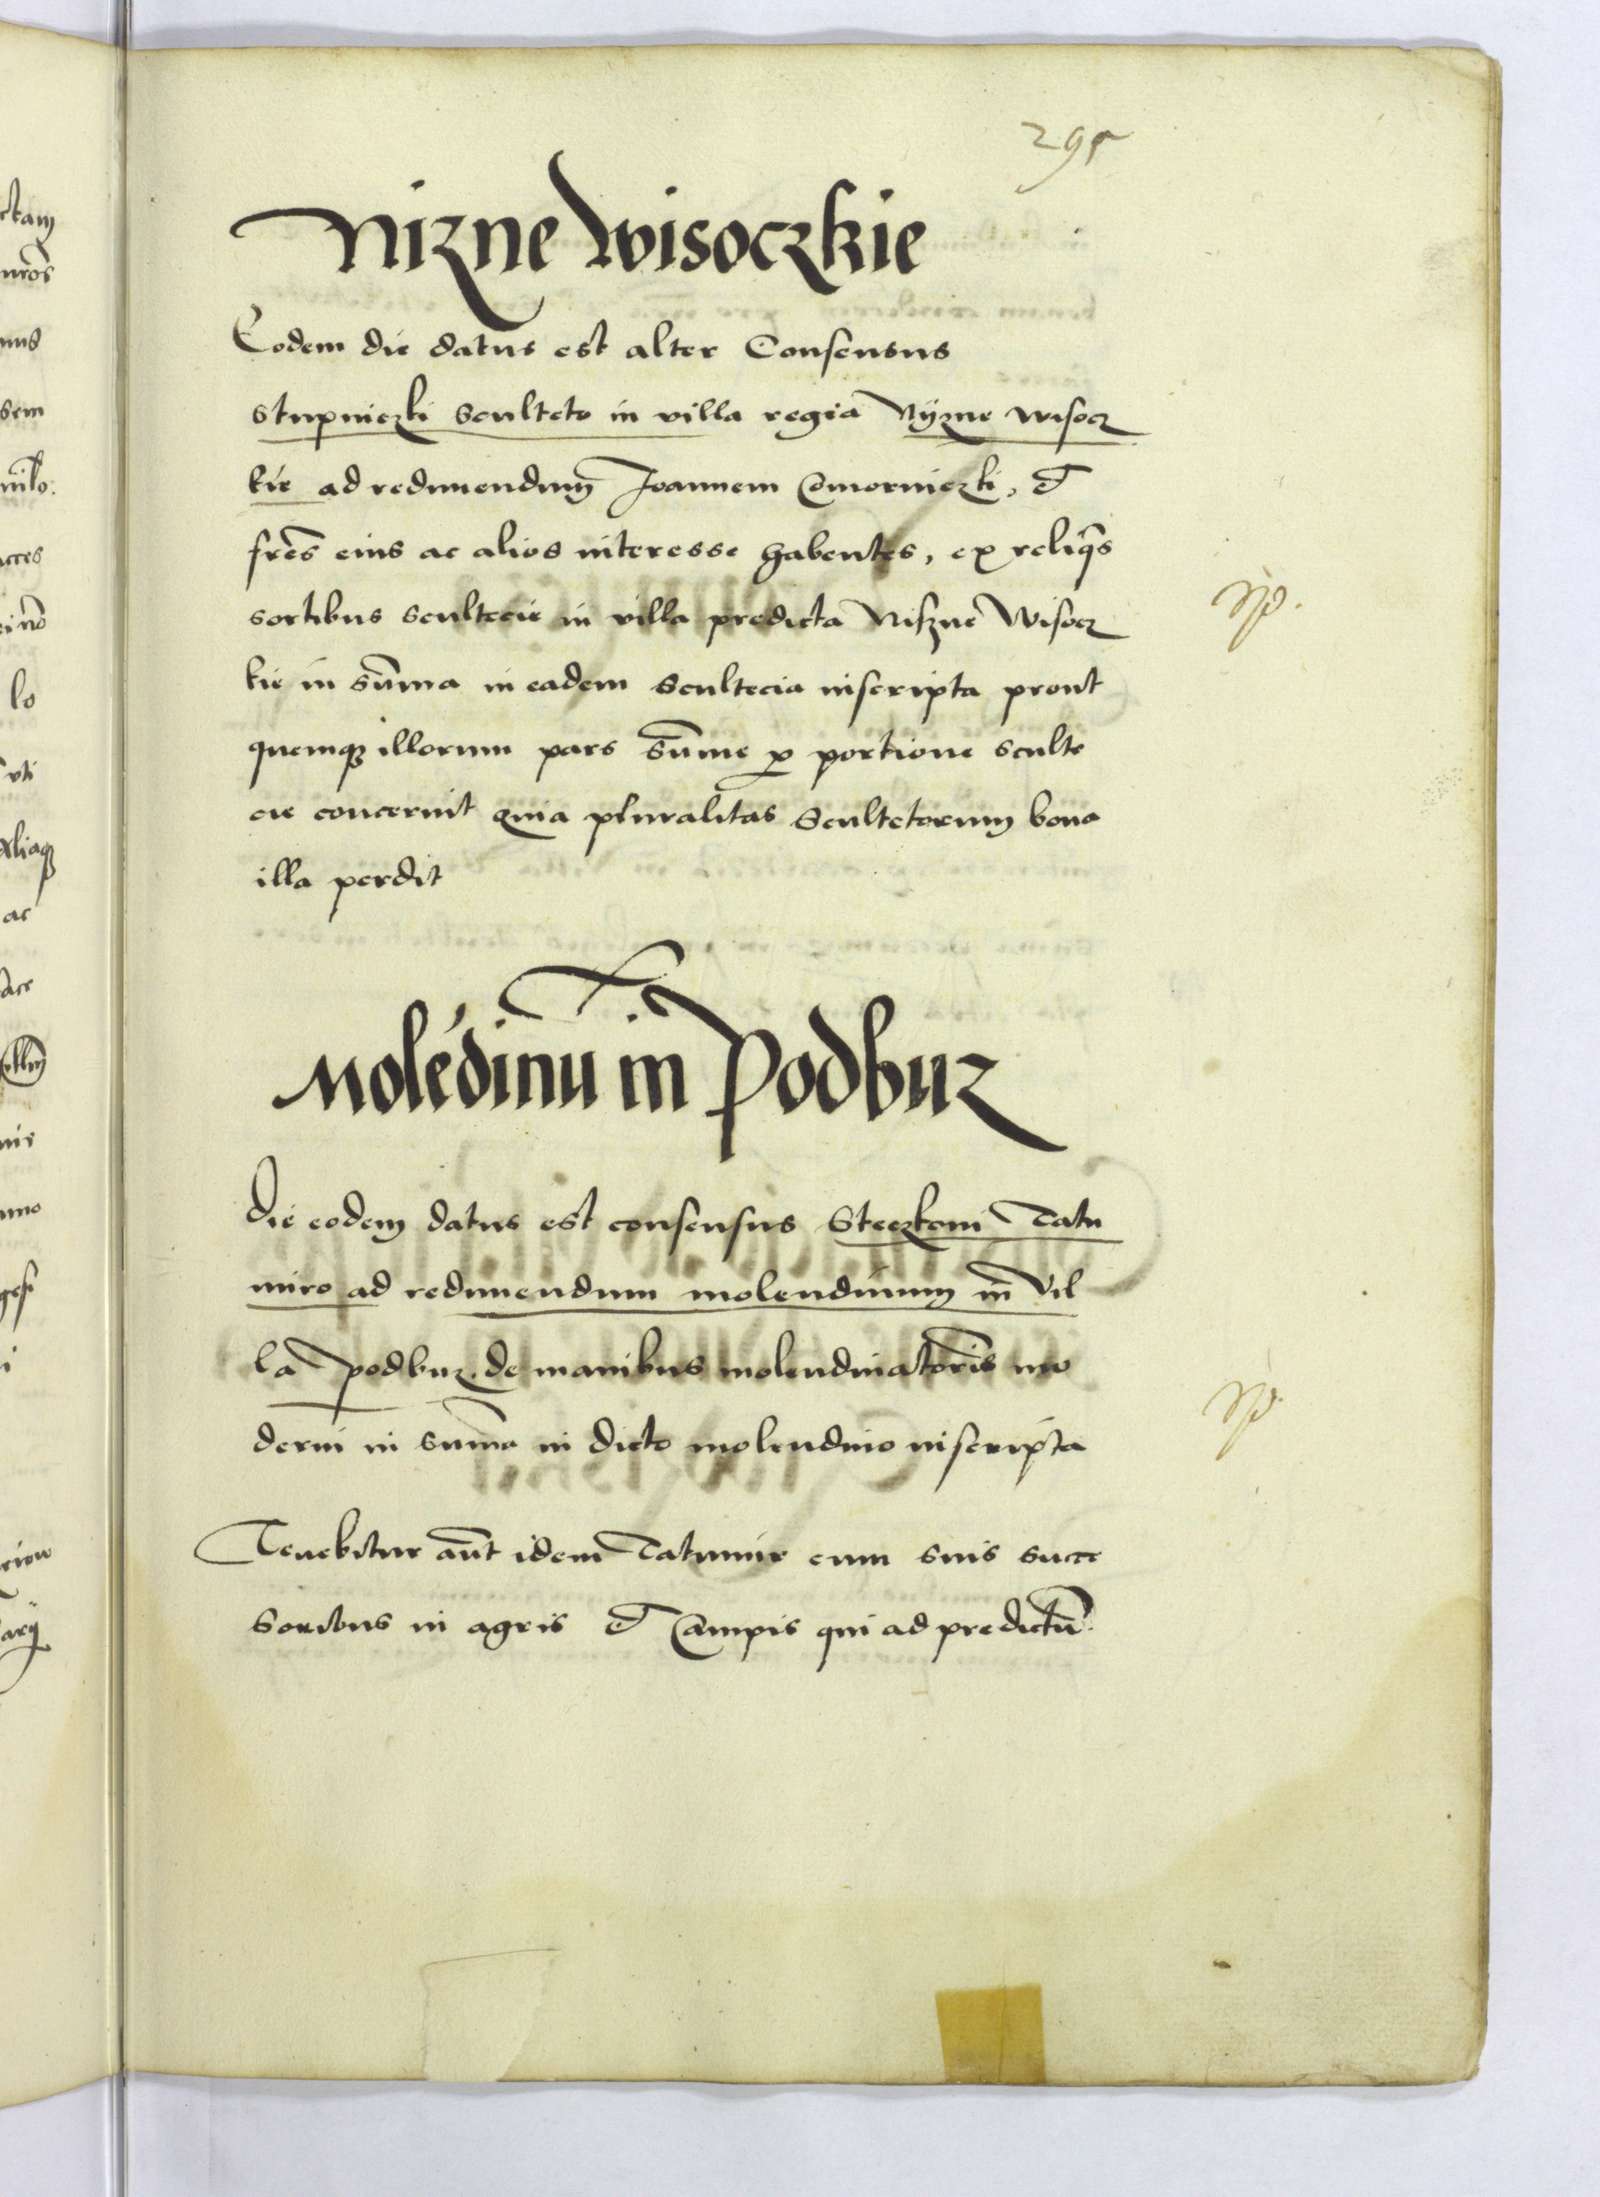 295
Nizne Wisoczkie
Eodem die datus est alter Consensus
Stupniczki Sculteto in villa regia Nyzne Wisocz
kie ad redimendum Joannem Comorniczki, et
fres eius ac alios interesse habentes, ex reliqs
sortibus scultecie in villa predicta Niszne Wisocz
kie in suma in eadem Scultecia inscripta prout
quemq illorum pars sume p portione sculte
cie concernit quia pluralitas Scultetorum bona
illa perdit
Molēdinū in Podbuz
Die eodem datus est consensus Steczkoni Tatu
miro ad redimendum molendinum in vil
la Podbuz de manibus molendinatoris mo
derni in suma in dicto molendino inscripta
Tenebitur aut idem Tatumir cum suis succe
soribus in agris et Campis qui ad predictū